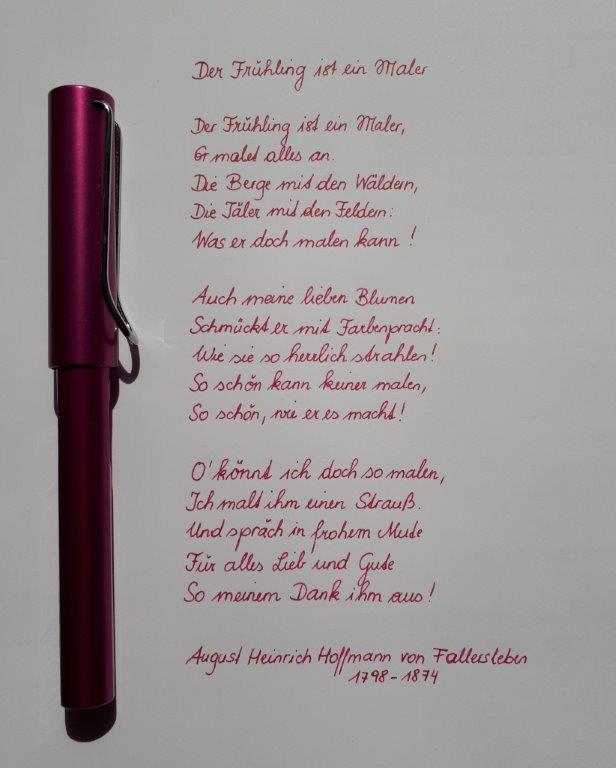 Der Frühling ist ein Maler
Der Frühling ist ein Maler,
Er malet alles an.
Die Berge mit den Wäldern,
Die Täler mit den Feldern:
Was er doch malen kann !
Auch meine lieben Blumen
Schmückt er mit Farbenpracht:
Wie sie so herrlich strahlen!
So schön kann keiner malen,
So schön, wie er es macht!
O' könnt ich doch so malen,
Ich malt ihm einen Strauß.
Und spräch in frohem Mute
Für alles Lieb und Gute
So meinem Dank ihm aus!
August Heinrich Hoffmann von Fallersleben
1798 - 1874